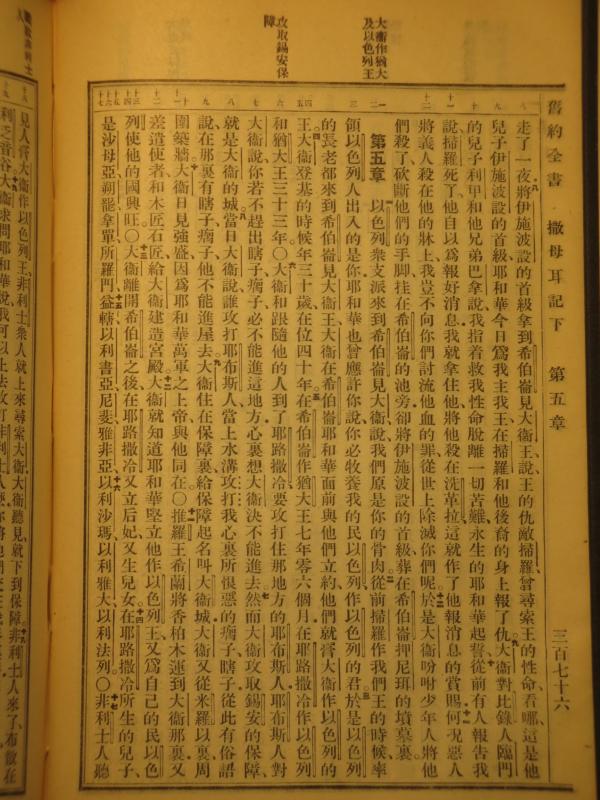 舊約全書　撒母耳記下　第五章　三百七十六
大衞作猶大
及以色列王
攻取錫安保
障
走了一夜將伊施波設的首級拿到希伯崙見大衞王說王的仇敵掃羅曾尋索王的性命看哪這是他
兒子伊施波設的首級耶和華今日爲我主我王在掃羅和他後裔的身上報了仇大衞對比錄人臨門
的兒子利甲和他兄弟巴拿說我指着救我性命脫離一切苦難永生的耶和華起誓從前有人報告我
說掃羅死了他自以爲報好消息我就拿住他將他殺在洗革拉這就作了他報消息的賞賜何况惡人
將義人殺在他的牀上我豈不向你們討流他血的罪從世上除滅你們呢於是大衞吩咐少年人將他
們殺了砍斷他們的手脚挂在希伯崙的池旁卻將伊施波設的首級葬在希伯崙押尼珥的墳墓裏
第五章　以色列衆支派來到希伯崙見大衞說我們原是你的骨肉從前掃羅作我們王的時候率
領以色列人出入的是你耶和華也曾應許你說你必牧養我的民以色列作以色列的君於是以色列
的長老都來到希伯崙見大衞王大衞在希伯崙耶和華面前與他們立約他們就膏大衞作以色列的
王大衞登基的時候年三十歲在位四十年在希伯崙作猶大王七年零六個月在耶路撒冷作以色列
和猶大王三十三年〇大衞和跟隨他的人到了耶路撒冷要攻打住那地方的耶布斯人耶布斯人對
大衞說你若不趕出瞎子瘸子必不能進這地方心裏想大衞決不能進去然而大衞攻取錫安的保障
就是大衞的城當日大衞說誰攻打耶布斯人當上水溝攻打我心裏所恨惡的瘸子瞎子從此有俗語
說在那裏有瞎子瘸子他不能進屋去大衞住在保障裏給保障起名叫大衞城大衞又從米羅以裏周
圍築牆大衞日見強盛因爲耶和華萬軍之上帝與他同在〇推羅王希蘭將香柏木運到大衞那裏又
差遣使者和木匠石匠給大衞建造宮殿大衞就知道耶和華堅立他作以色列王又爲自己的民以色
列使他的國興旺〇大衞離開希伯崙之後在耶路撒冷又立后妃又生兒女在耶路撒冷所生的兒子
是沙母亞朔罷拿單所羅門益轄以利書亞尼斐雅非亞以利沙瑪以利雅大以利法列〇非利士人聽
見人膏大衞作以色列王非利士衆人就上來尋索大衞大衞聽見就下到保障非利士人來了布散在
利乏音谷大衞求問耶和華說我可以上去攻打非利士人麽你將他們交在我手裏